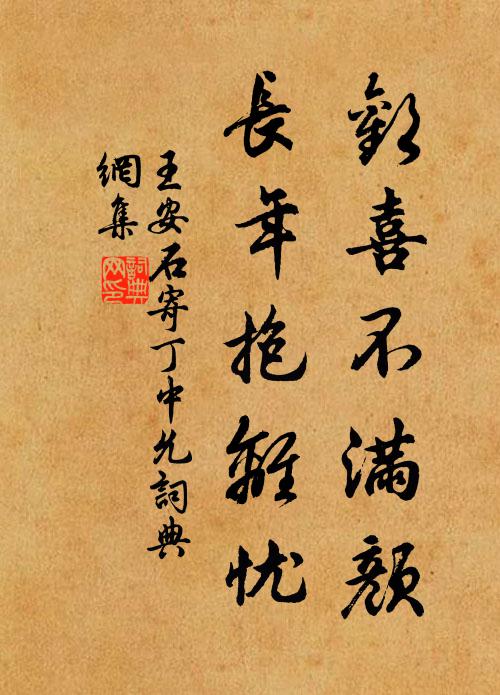 歡喜不滿顏
長年抱離忧
王安石寄丁中允詞典
網集
詞典
网印